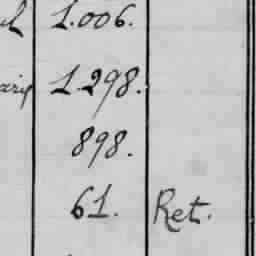 1.006.
1.298.
898.
61. Ret.